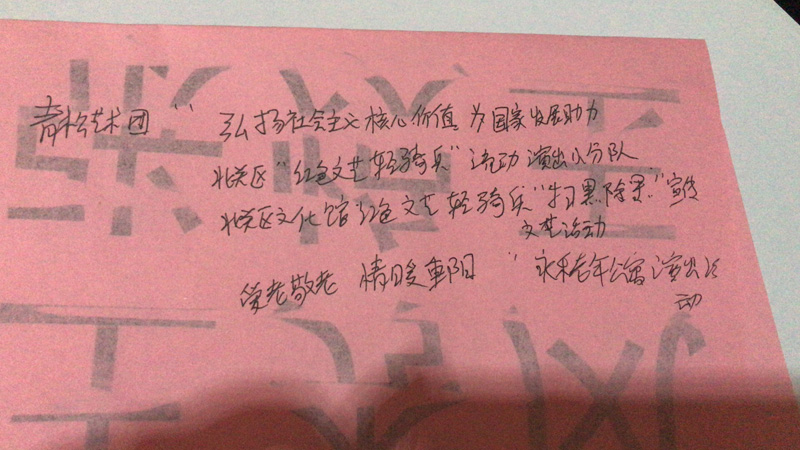 青松艺术团 “ 弘扬社会主义核心价值 为国家发展助力
北关区“红色文艺轻骑兵”流动演出小分队
北关区文化馆红色文艺轻骑兵“扫黑除恶”宣传
文艺活动
爱老敬老 情暖重阳 “ 永和老年公寓演出活
动